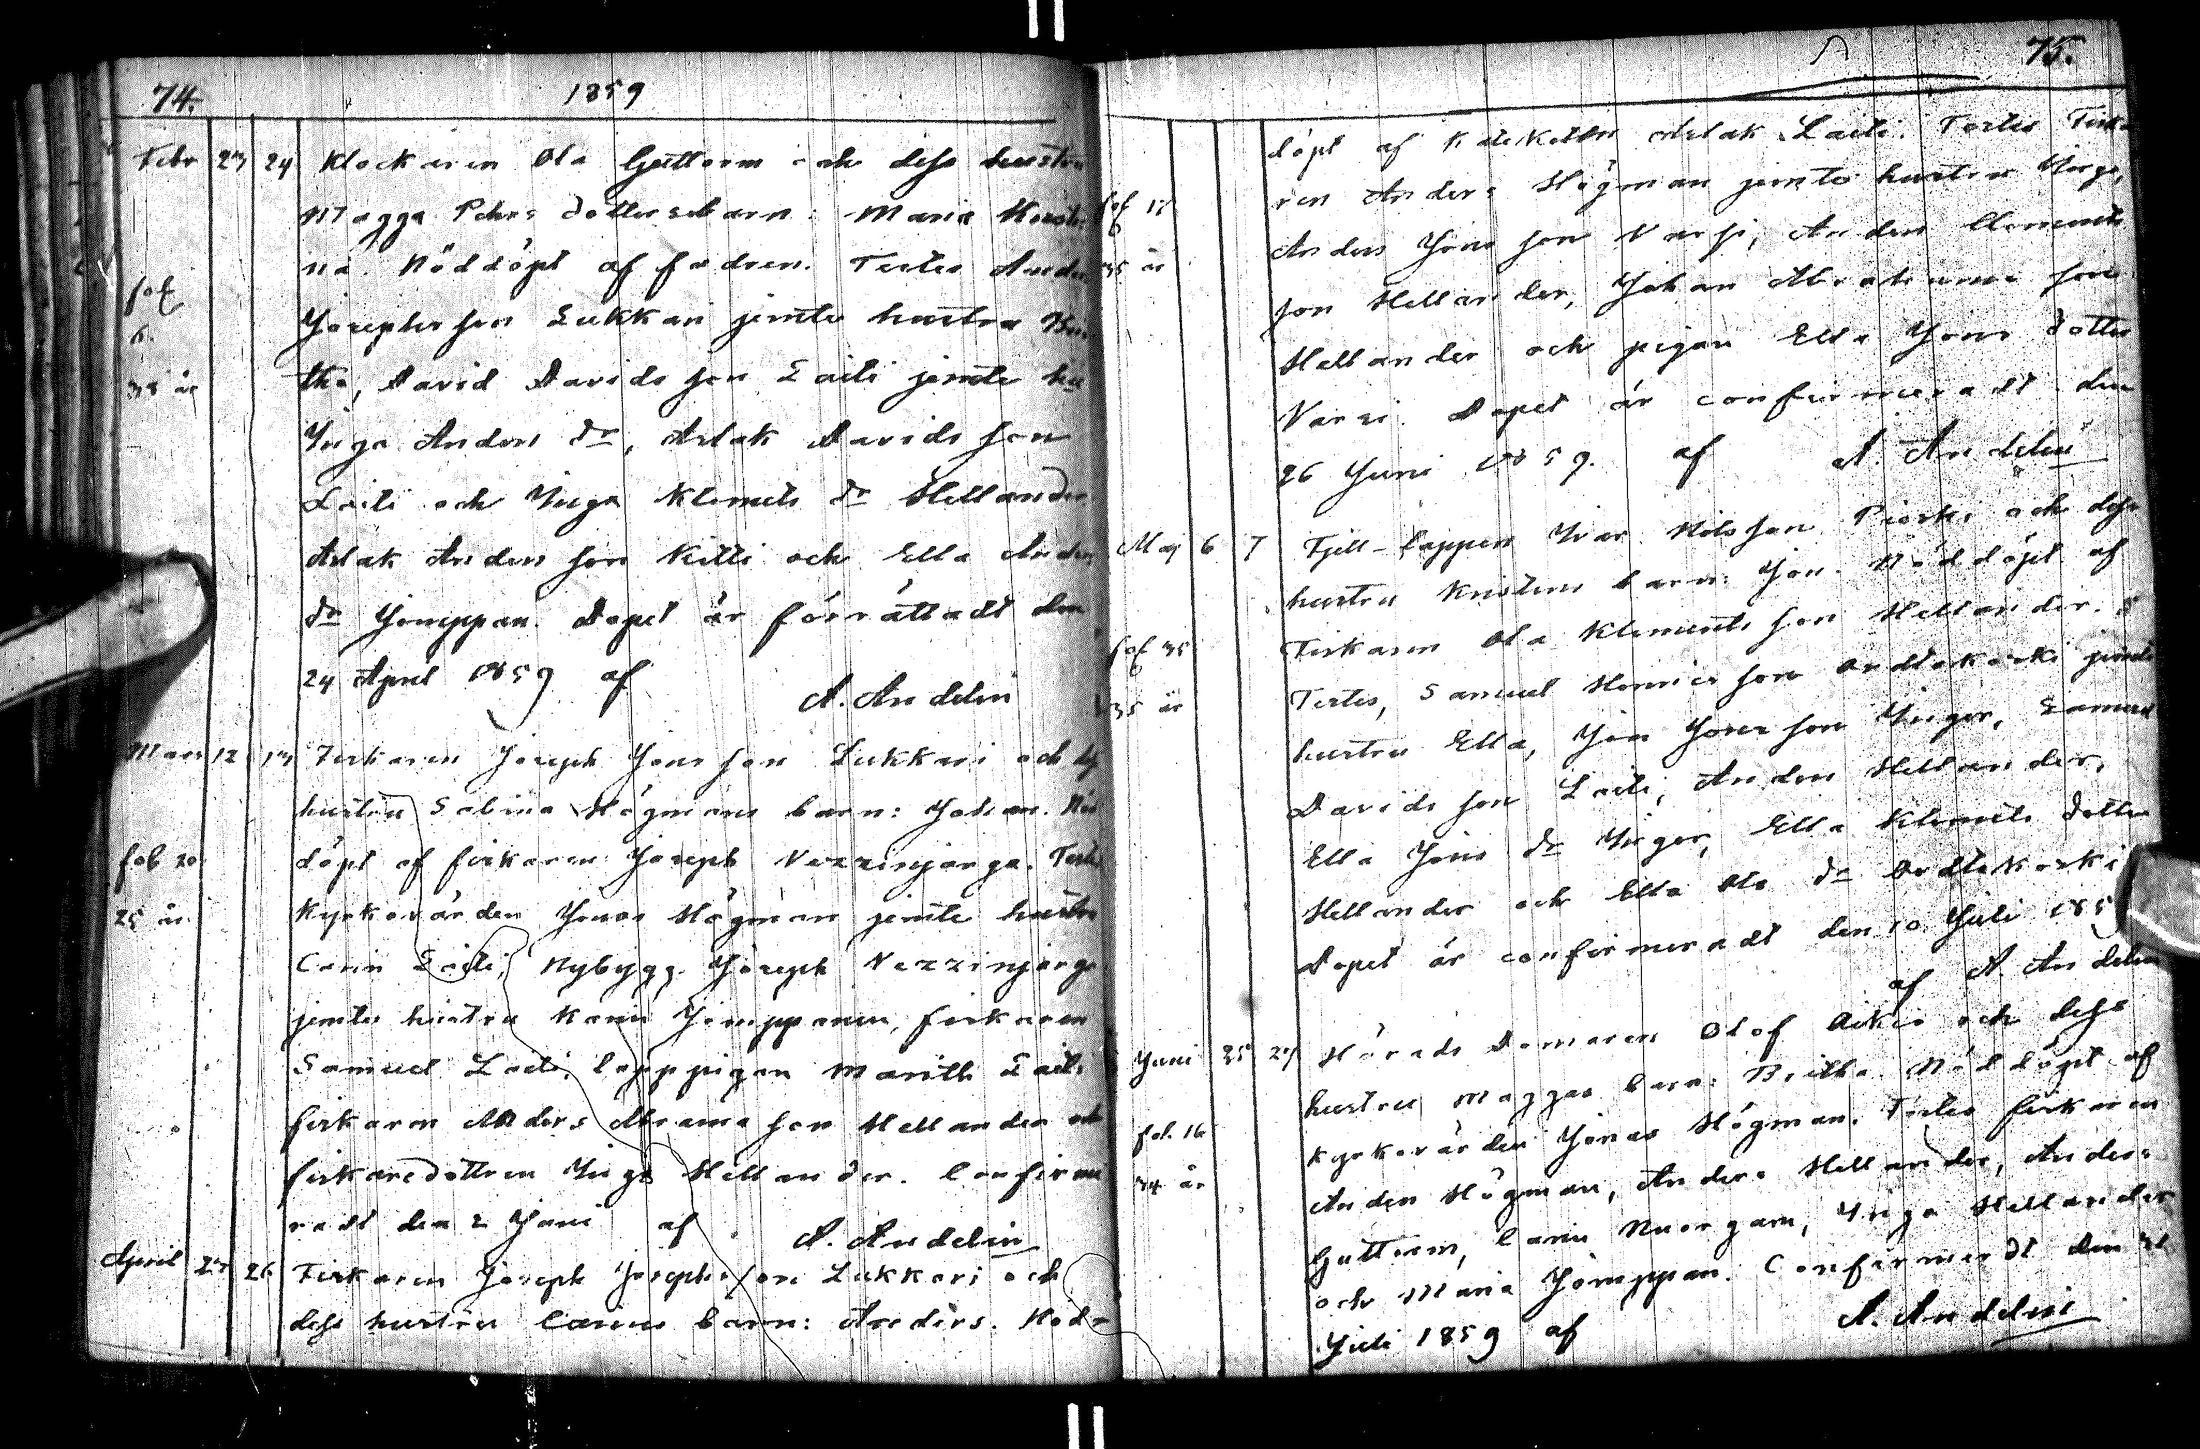 74.
1859
Febr 23 24 Klockaren Ola Guttorm och dess hustru
Magga Pehrs dotters barn: Maria Kristi
na. Nöddöpt af fadren. Testes Anders
fol 6. Josephs son Lukkari jemte hustru
38 år tha, David Davids son Laiti jemte hu
Inga Anders dr, Aslak Davids son
Laiti och Inga Klemets dr Hellander
Aslak Anders son Kitti och Ella Anders
dr Jomppan. Dopet är förrättadt den
24 April 1859 af
A. Andelin
Mars 12 13 Fiskaren Joseph Jons son Lukkari och
hustru Sabina Högmans barn: Johan. Nöd
fol 20 döpt af fiskaren Joseph Vezzinjarga. Testes
25 år Kyrkovärden Jonas Högman jemte hustru
Carin Laiti, Nybygg. Joseph Vezzinjarga
jemte hustru Karin Jomppanen, fiskaren
Samuel Laiti, lapppigan Marith Laiti
fiskaren Anders Abrams son Hellander och
fiskaredottren Inga Hellander. Confirme
radt den 2 Juni af
A. Andelin
April 23 26 Fiskaren Joseph Josephs son Lukkari och
dess hustru Carins barn: Anders. Nöd
75.
döpt af Kateketen Aslak Laiti. Testes Fiska
fol 17 ren Anders Högman jemte hustru Inga,
35 år Anders Jons son Varsi, Anders Clements
son Hellander, Johan Abrahams son
Hellander och pigan Ella Jons dotter
Varsi. Dopet är confirmeradt den
26 Juni 1859. af
A. Andelin
Maj 6 7 Fjell-lappen Ivar Nils son Pieski och dess
hustru Kristins barn: Jon. Nöddöpt af
fol 35 Fiskaren Ola Klemets son Hellander.
35 år Testes, Samuel Henrics son Ordtakoski jemte
hustru Ella, Jon Jons son Yrigor, Samuel
Davids son Laiti, Anders Hellander,
Ella Jons dr Yrigor, Ella Klemets dotter
Hellander och Ella Ola dr Ordtakoski
Dopet är confirmeradt den 10 Juli 185
af A. Andelin
Juni 25 27 Härads Domaren Olof Aikio och dess
hustru Maggas barn: Britha. Nöddöpt af
fol. 16 kyrkovärden Jonas Högman. Testes fiskaren
34 år Anders Högman, Anders Hellander, Anders
Guttorm, Carin Nuorgam, Inga Hellander
och Maria Jomppan. Confirmeradt den 31
Juli 1859 af
A. Andelin